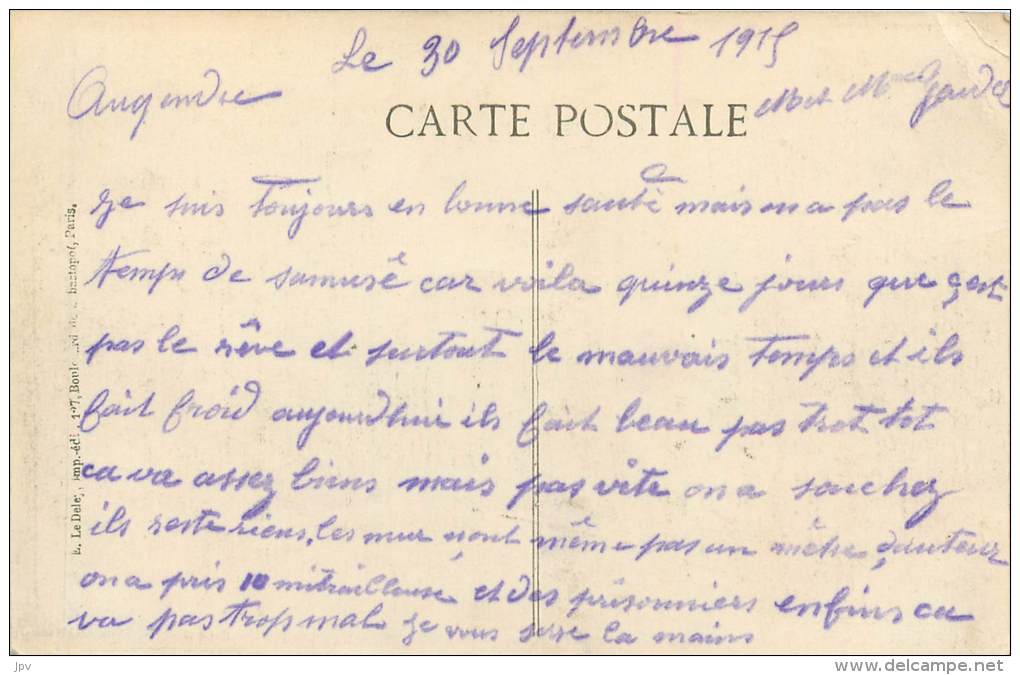 Le 30 Septembre 1915
Angendre
M et Mme
CARTE POSTALE
Je suis toujours en bonne santé mais on a pas le
temps de samusé car voila quinze jours que çest
pas le rêve et surtout le mauvais temps et ils
fait froid aujourdhui ils fait beau pas trot tot
ca va assez biens mais pas vite on a souchez
ils reste riens, les mur nont même pas un mêtre dauteur
on a pris 10 mitrailleuse et des prisonniers enfins ca
va pas trop mal je vous serre la mains
E. Le Deley, imp.-édi., 127, Boul. Sébastopol, Paris.
jpv
www.delcampe.net